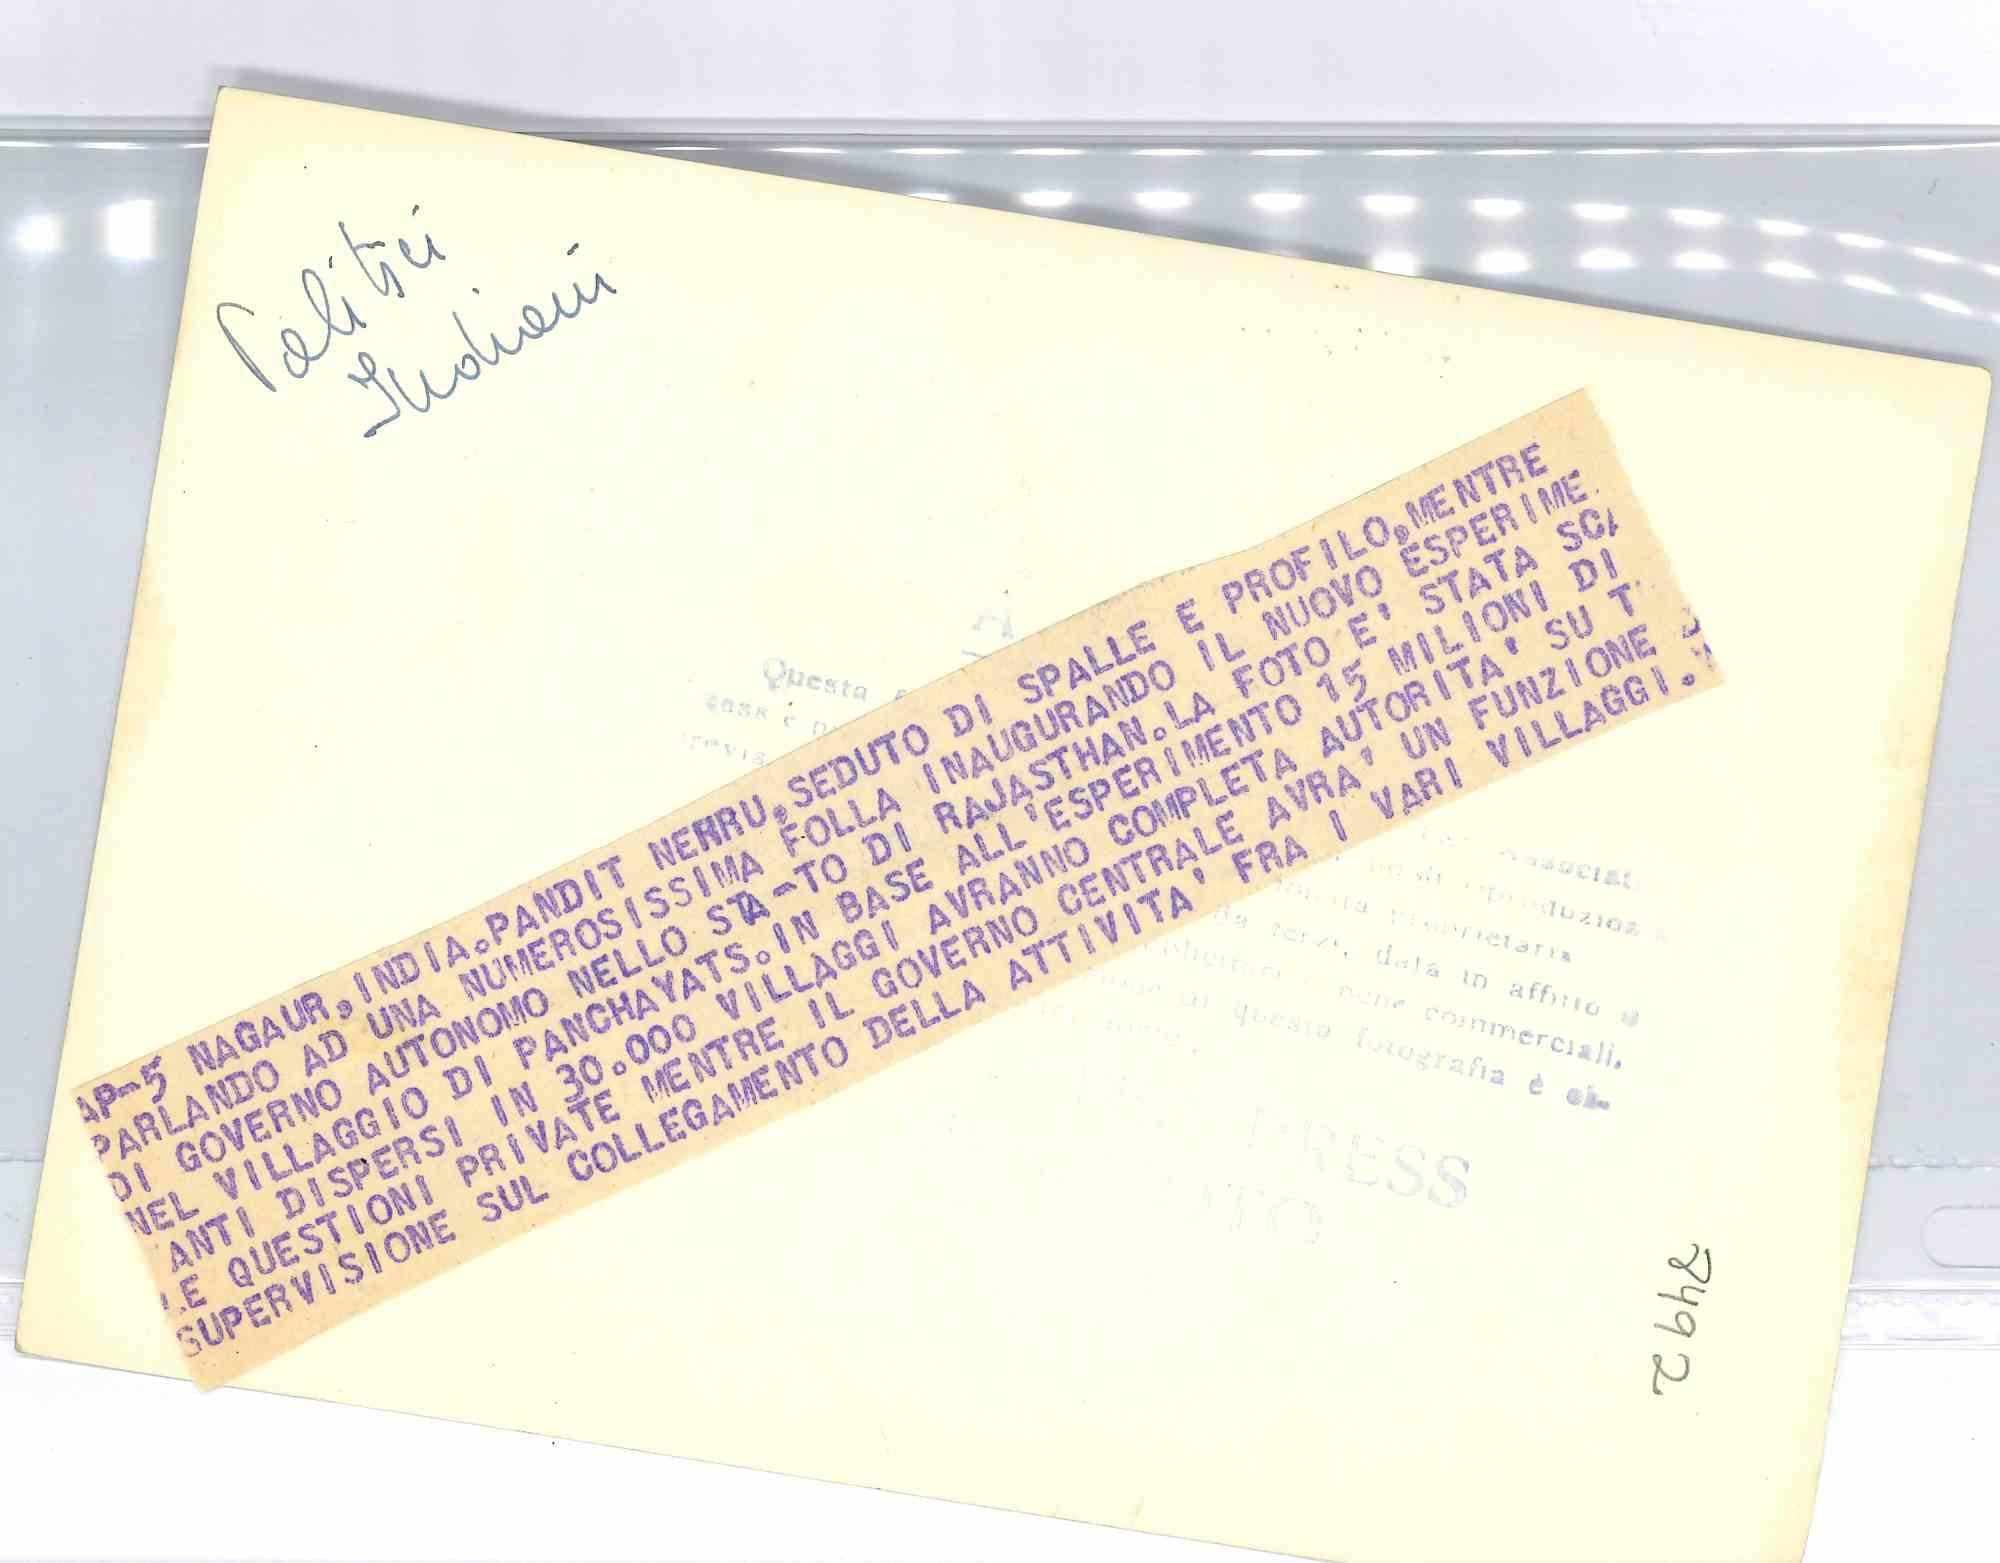 Politici
Indiani
AP-5 NAGAUR,INDIA.PANDIT NEHRU,SEDUTO DI SPALLE E PROFILO,MENTRE
PARLANDO AD UNA NUMEROSISSIMA FOLLA INAUGURANDO IL NUOVO ESPERIME
DI GOVERNO AUTONOMO NELLO STA-TO DI RAJASTHAN.LA FOTO E' STATA SCA
NEL VILLAGGIO DI PANCHAYATS.IN BASE ALL'ESPERIMENTO 15 MILIONI DI
ANTI DISPERSI IN 30.000 VILLAGGI AVRANNO COMPLETA AUTORITA' SU T
LE QUESTIONI PRIVATE MENTRE IL GOVERNO CENTRALE AVRA' UN FUNZIONE
SUPERVISIONE SUL COLLEGAMENTO DELLA ATTIVITA' FRA I VARI VILLAGGI.
Questa
data in affitto o
commerciali.
di questa fotografia è
PRESS
7492